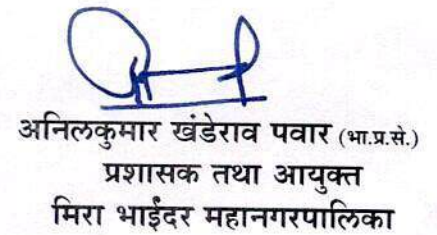 अनिलकुमार खंडेराव पवार (भा.प्र.से.)
प्रशासक तथा आयुक्त
मिरा भाईंदर महानगरपालिका